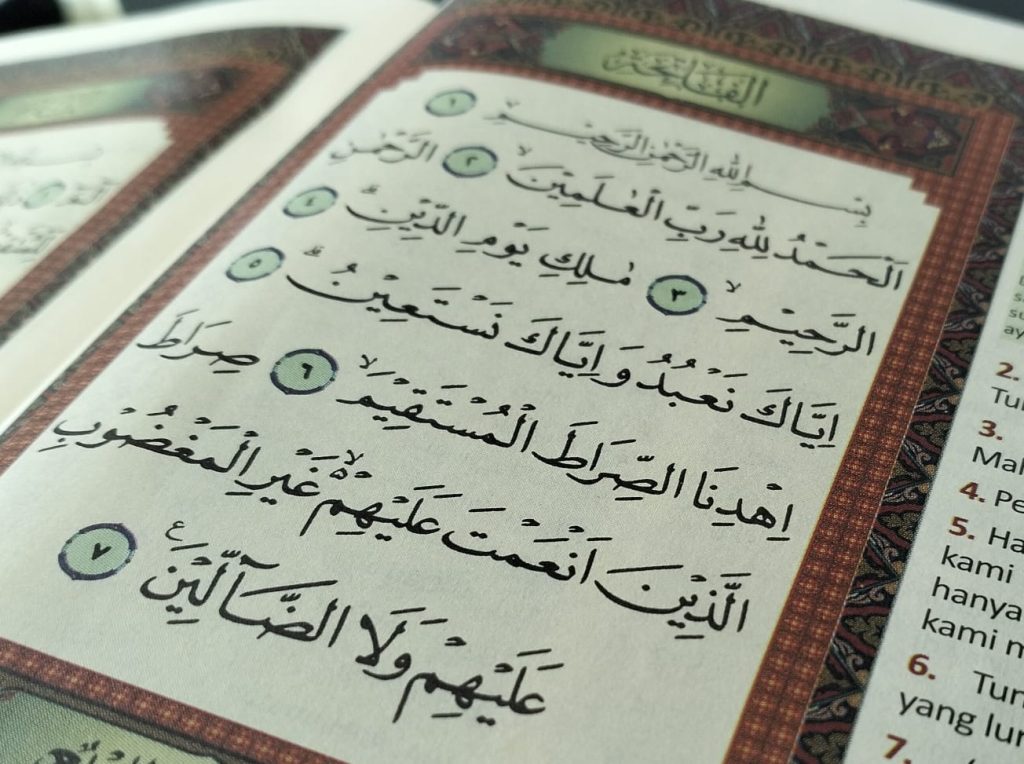 الفاتحة
بِسْمِ اللهِ الرَّحْمٰنِ الرَّحِيْمِۙ ١
اَلْحَمْدُ لِلّٰهِ رَبِّ الْعٰلَمِيْنَۙ ٢ الرَّحْمٰنِ
الرَّحِيْمِۙ ٣ مٰلِكِ يَوْمِ الدِّيْنِۗ ٤
اِيَّاكَ نَعْبُدُ وَاِيَّاكَ نَسْتَعِيْنُۗ ٥
اِهْدِنَا الصِّرَاطَ الْمُسْتَقِيْمَۙ ٦ صِرَاطَ
الَّذِيْنَ اَنْعَمْتَ عَلَيْهِمْ ەۙ غَيْرِ الْمَغْضُوْبِ
عَلَيْهِمْ وَلَا الضَّاۤلِّيْنَ ࣖ ٧
2.
3.
4.
5.
kami
hanya
kami
6.
yang
7.